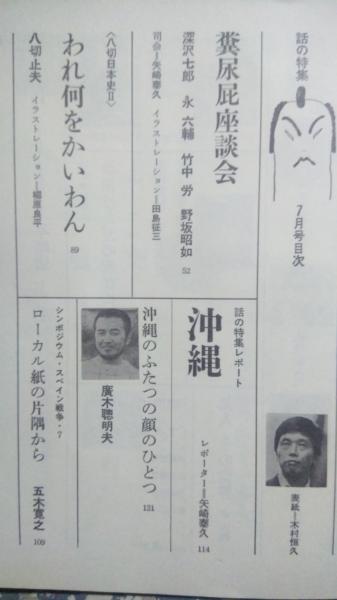 話の特集
7月号目次
表紙=木村恒久
糞尿屁座談会
深沢七郎 永六輔 竹中労 野坂昭如
52
司会=矢崎泰久 イラストレーション=田島征三
〈八切日本史Ⅱ〉
われ何をかいわん
89
八切止夫 イラストレーション=楢原良平
話の特集レポート
沖縄
レポーター=矢崎泰久
114
沖縄のふたつの顔のひとつ
131
廣木聰明夫
シンポジウム・スペイン戦争・7
ローカル紙の片隅から
五木寛之
109